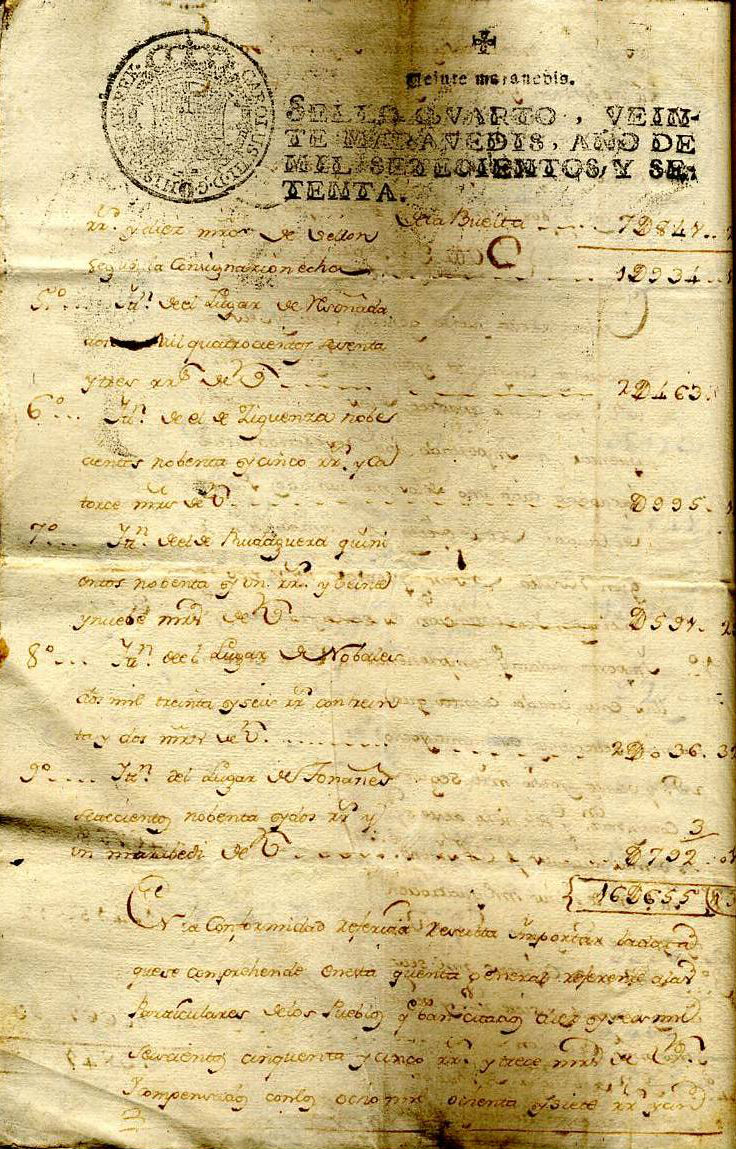 CAROLUS III D G HISPANIAR REX
Veinte maravedis.
SELLO QVARTO, VEIN-
TE MARAVEDIS, AÑO DE
MIL SETECIENTOS, Y SE-
TENTA.
De la Buelta 7D847..
rr.s y diez mrs de vellon
segun la Consignacion echa 1D934..
5º... Yttn. de el Lugar de
mil quatrocientos sesenta
y tres rr.s de Vn 2D463.
6º... Yttn. de el de Ziguenza nobe
cientos nobenta y cinco rr.s y ca
torce mrs de Vn D995.
7º... Yttn. de el de Ruiseguera quini
entos nobenta y un rr.s y beinte
y nuebe mrs de Vn D591.
8º... Yttn. de el Lugar de Nobales
dos mil treinta y seis rr.s con trein
ta y dos mrs de Vn 2Do36. 32
9º.... Yttn. del Lugar de Tonanes
setecientos nobenta y dos rr.s y
un marabedi de Vn D792.
16D655
En la Conformidad referida resulta importar
que se comprehende en esta quenta general referente a las
Particulares de los Pueblos que ban citados diez y seis mil
seiscientos cinquenta y cinco rr.s y trece mrs de Vn
Compensados con los ocho mil ochenta y siete rr.s